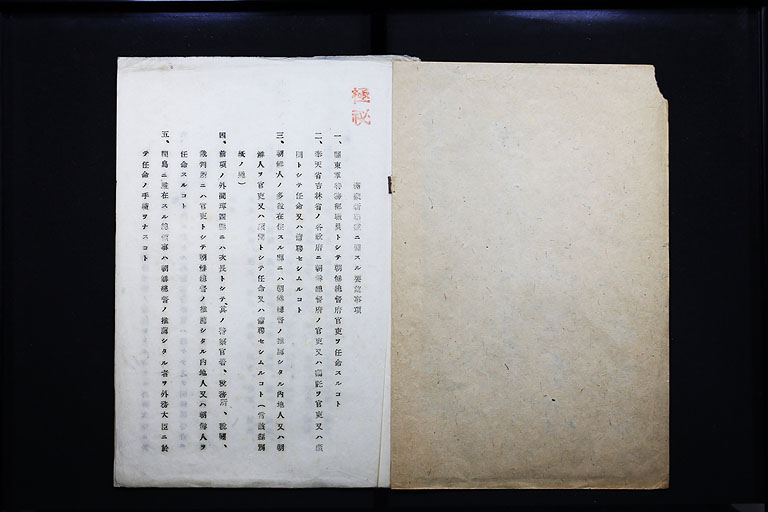 極秘
満蒙新政権ニ関スル要望事項
一、關東軍特務部職員トシテ朝鮮總督府官吏ヲ任命スルコト
二、奉天省吉林省ノ各政府ニ朝鮮總督府ノ官吏又ハ囑託ヲ官吏又ハ顧
問トシテ任命又ハ傭聘セシムルコト
三、朝鮮人ノ多数在住スル縣ニハ朝鮮總督ノ推薦シタル内地人又ハ朝
鮮人ヲ官吏又ハ顧問トシテ任命又ハ傭聘セシムルコト(當該縣別
紙ノ通)
四、前項ノ外間琿四縣ニハ次長トシテ、其ノ警察官署、税務所、税關、
裁判所ニハ官吏トシテ朝鮮總督ノ推薦シタル内地人又ハ朝鮮人ヲ
任命スルコト
五、間島ニ駐在スル總領事ハ朝鮮總督ノ推薦シタル者ヲ外務大臣ニ於
テ任命ノ手續ヲナスコト